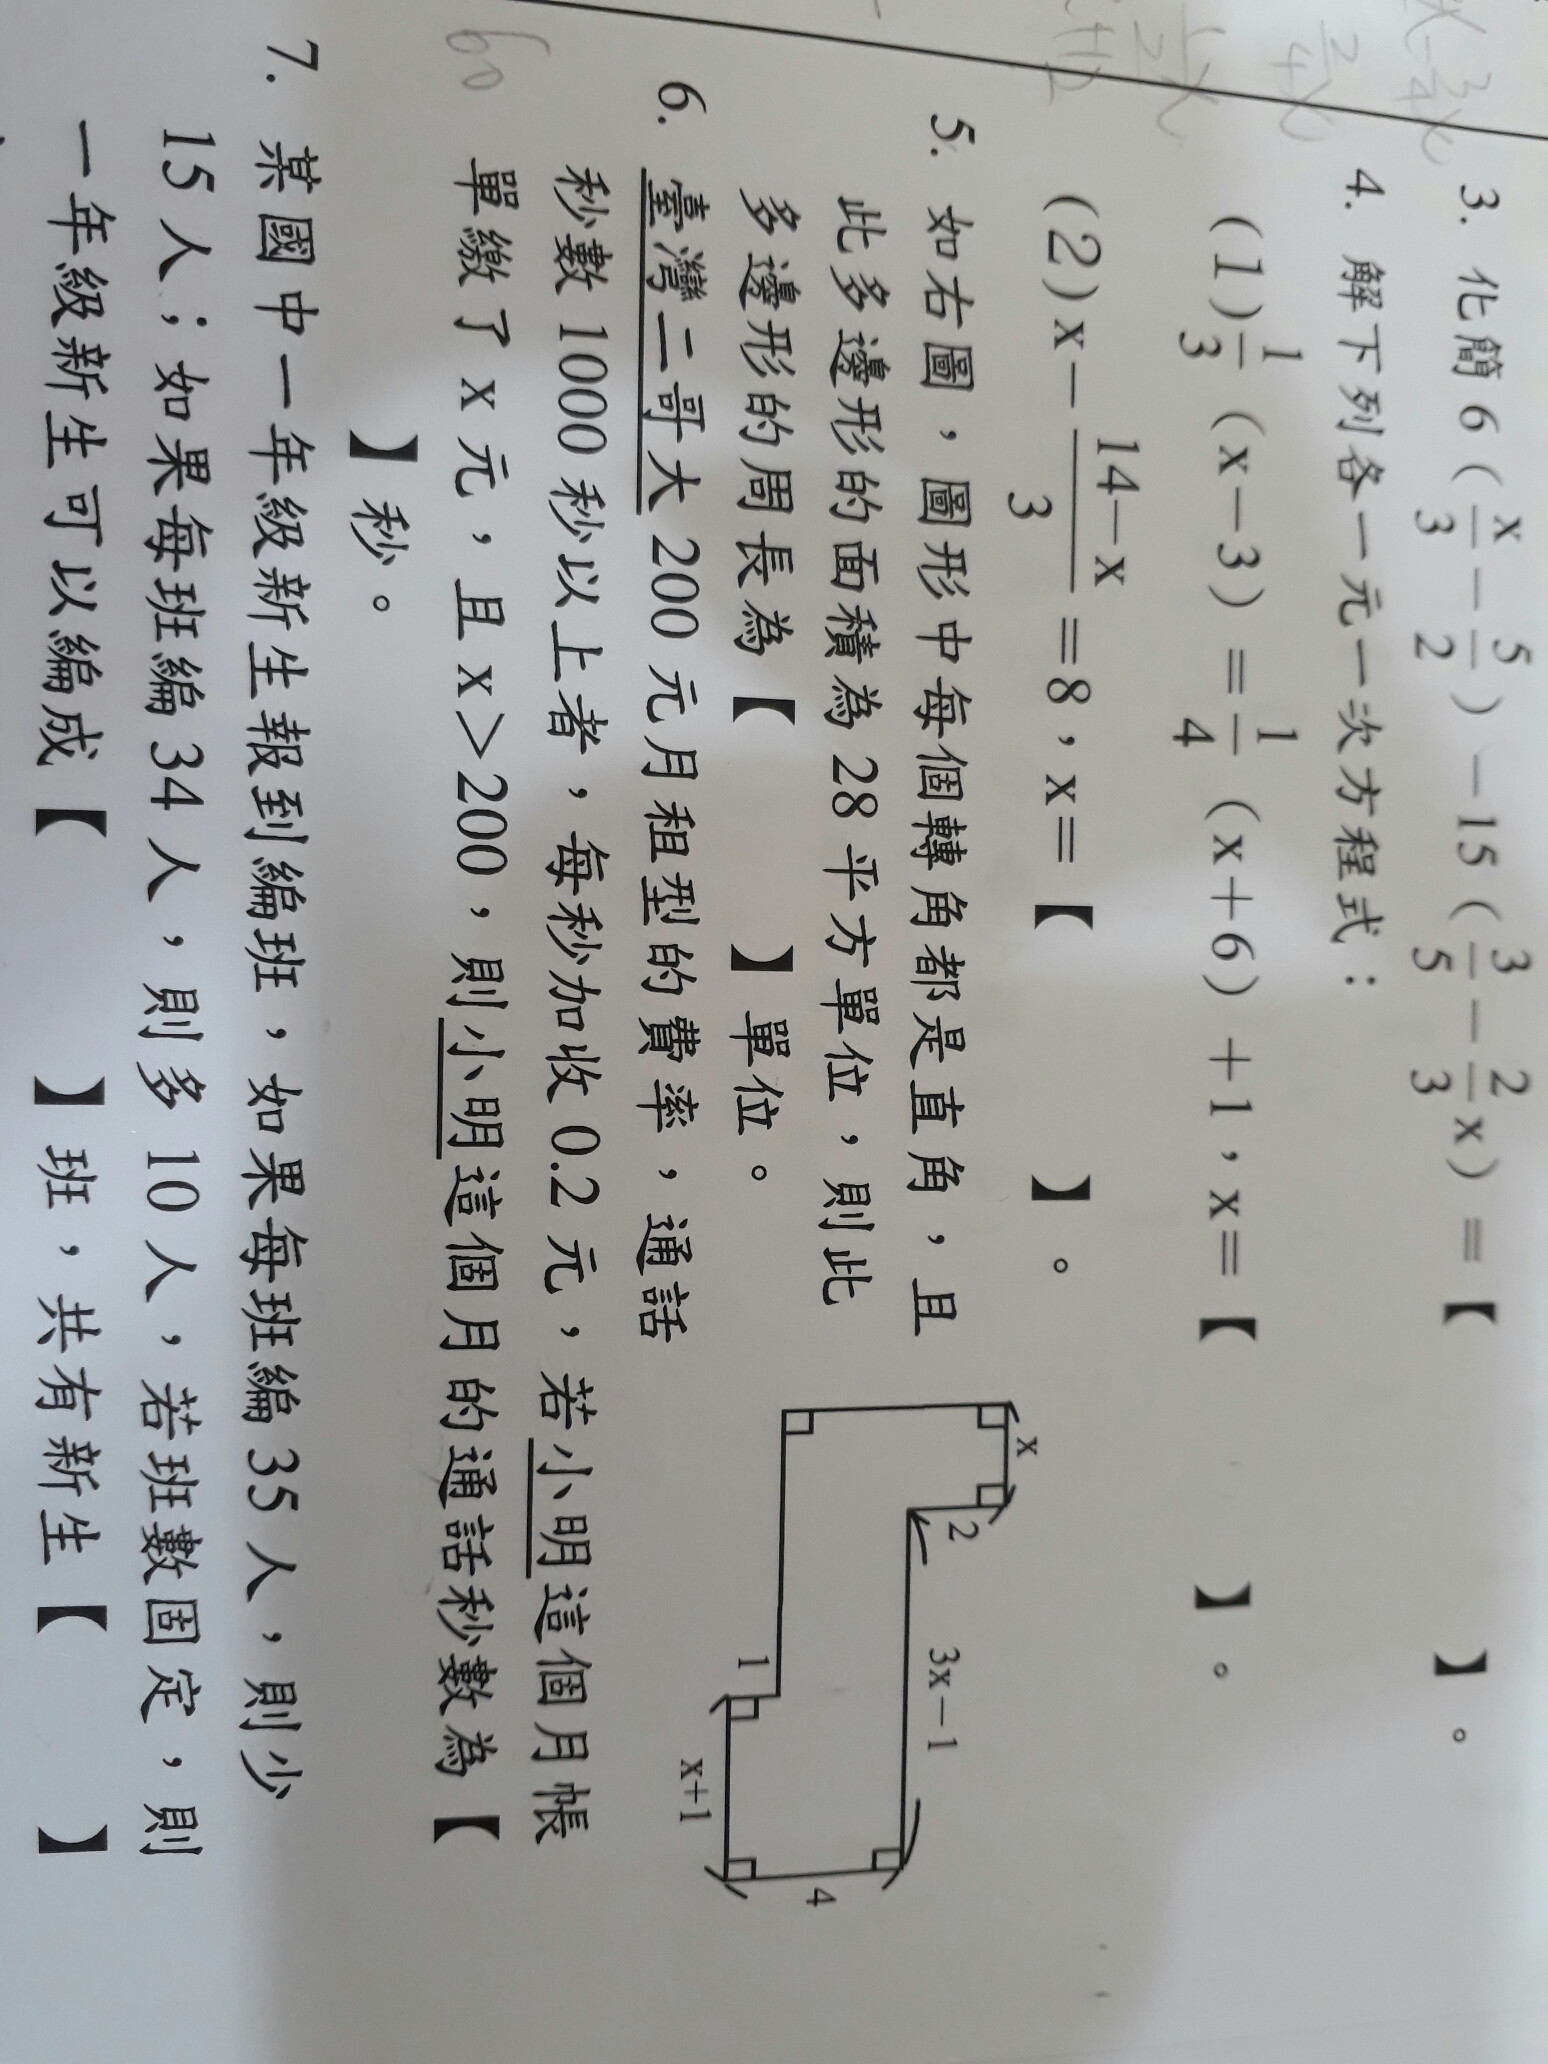 3. 化簡 6 ( x/3 − 5/2 ) −15 ( 3/5 − 2/3 x ) = 【 】。
4. 解下列各一元一次方程式：
(1) 1/3 ( x−3 ) = 1/4 ( x+6 ) +1，x=【 】。
(2) x− 14−x/3 =8，x=【 】。
5. 如右圖，圖形中每個轉角都是直角，且
此多邊形的面積為 28 平方單位，則此
多邊形的周長為【 】單位。
x
2
3x−1
4
1
x+1
6. 臺灣二哥大 200 元月租型的費率，通話
秒數 1000 秒以上者，每秒加收 0.2 元，若小明這個月帳
單繳了 x 元，且 x＞200，則小明這個月的通話秒數為【
】秒。
60
7. 某國中一年級新生報到編班，如果每班編 35 人，則少
15 人；如果每班編 34 人，則多 10 人，若班數固定，則
一年級新生可以編成【 】班，共有新生【 】